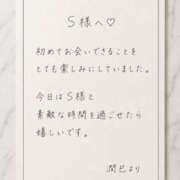 S様へ♡
初めてお会いできることを
とても楽しみにしていました。
今日はS様と
素敵な時間を過ごせたら
嬉しいです。
潤巳より